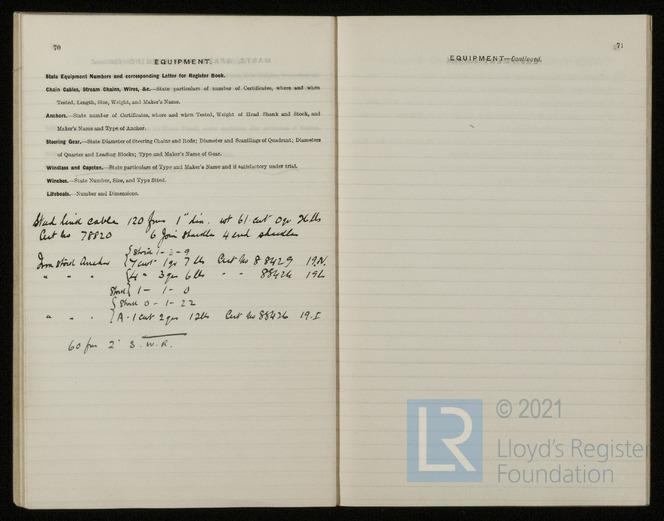 70
EQUIPMENT.
State Equipment Numbers and corresponding Letter for Register Book.
Chain Cables, Stream Chains, Wires, &c.—State particulars of number of Certificates, where and when
Tested, Length, Size, Weight, and Maker's Name.
Anchors.—State number of Certificates, where and when Tested, Weight of Head Shank and Stock, and
Maker's Name and Type of Anchor.
Steering Gear.—State Diameter of Steering Chains and Rods; Diameter and Scantlings of Quadrant; Diameters
of Quarter and Leading Blocks; Type and Maker's Name of Gear.
Windlass and Capstan.—State particulars of Type and Maker's Name and if satisfactory under trial.
Winches.—State Number, Size, and Type fitted.
Lifeboats.—Number and Dimensions.
Stud link cable 120 fms 1" dia. wt 61 cwt 0 qr 26 lbs
Cert No 78820 6 Join shackles 4 end shackles
Stock 1-2-9
Iron stock Anchor 7 cwt 1 qr 7 lbs Cert No 88429 19.N.
" " " 3 qr 6 lbs " " 88424 19
Stock 1-1-0
Stock 0-1-22
" " " A-1 cwt 2 qrs 12 lbs Cert No 88426 19.I
60 fms 2" S.W.R.
71
EQUIPMENT—Continued.
LR
© 2021
Lloyd's Register
Foundation